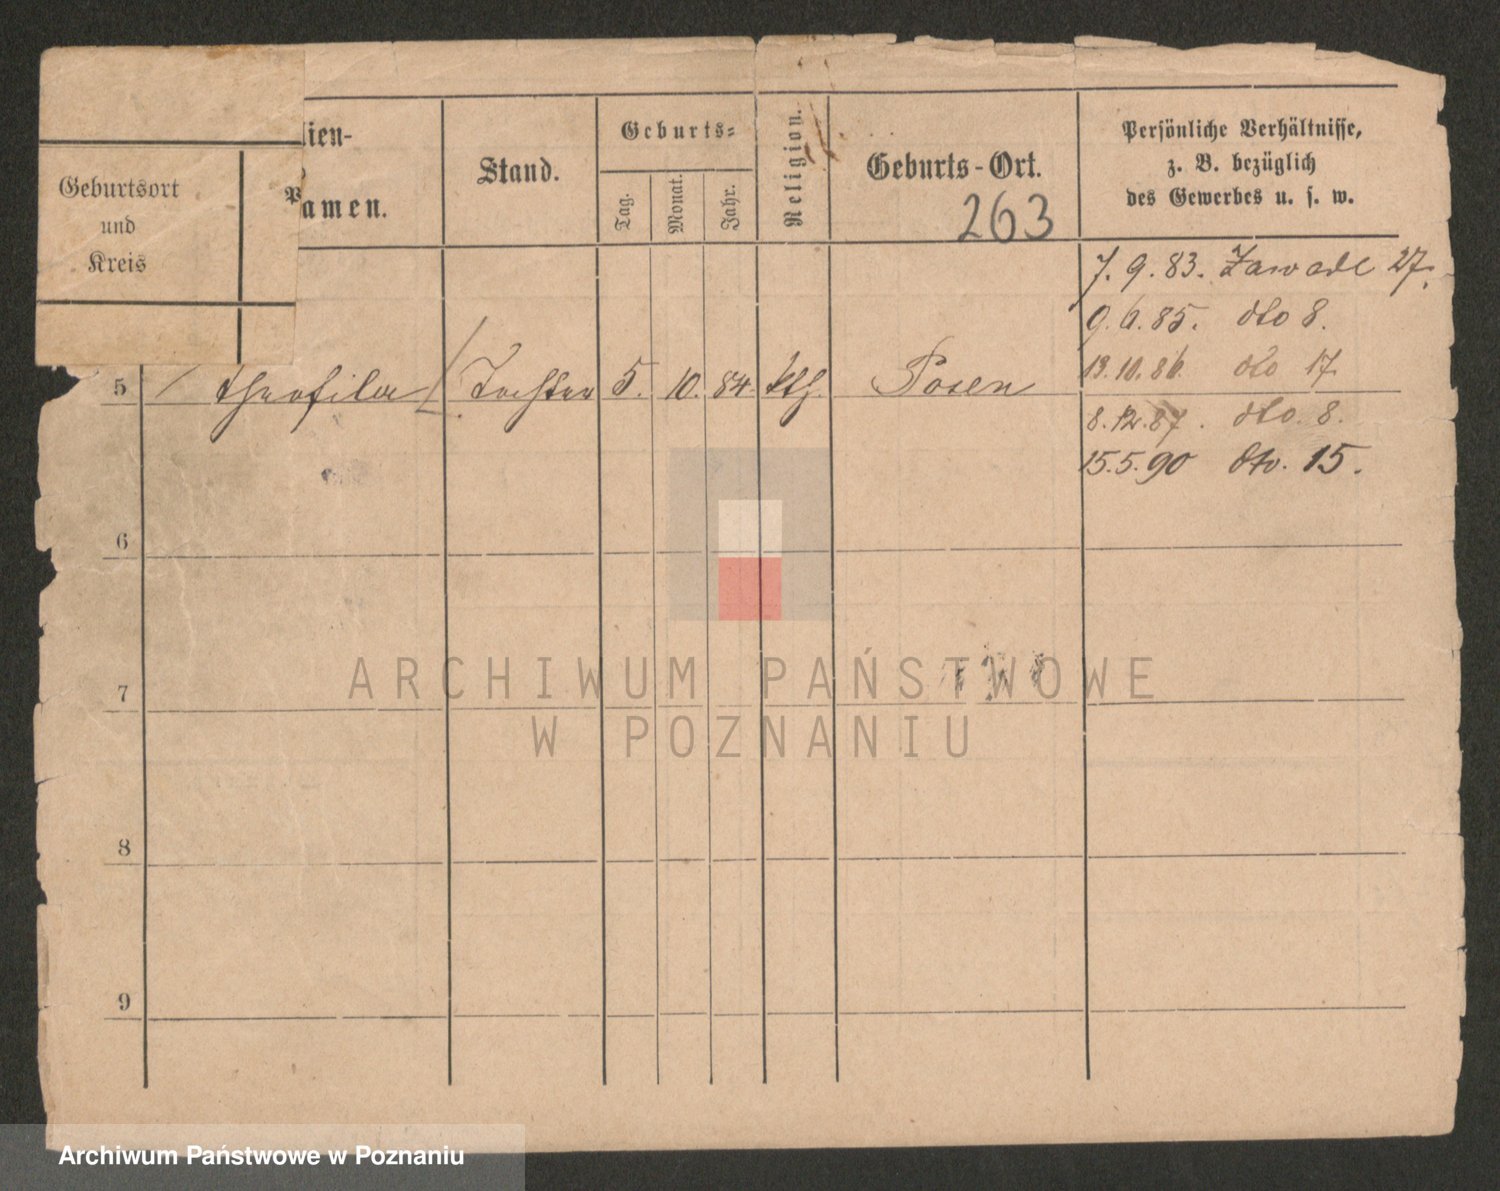 Geburtsort
und
Kreis
lien-
Namen.
Stand.
Geburts-
Tag.
Monat.
Jahr.
Religion.
Geburts-Ort.
263
Persönliche Verhältnisse,
z. B. bezüglich
des Gewerbes u. s. w.
7. 9. 83. Zawade 27.
9. 6. 85. dto 8.
13. 10. 86. dto 17.
5 Theofila Tochter 5. 10. 84. kth. Posen
8. 12. 87. dto. 8.
15. 5. 90 dto. 15.
6
7
8
9
ARCHIWUM PAŃSTWOWE
W POZNANIU
Archiwum Państwowe w Poznaniu